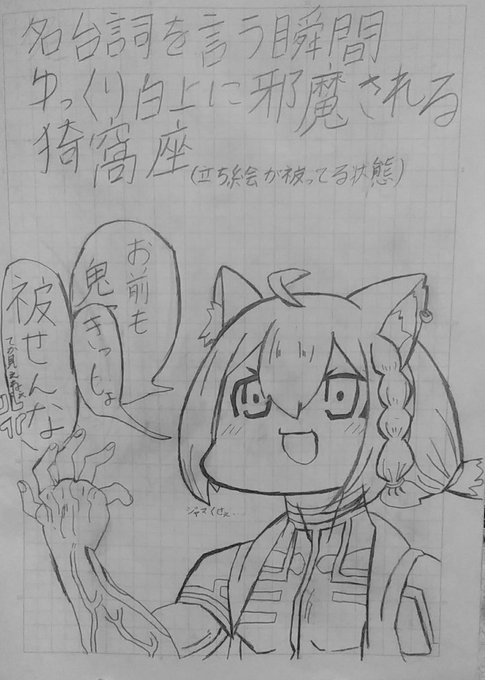 名台詞を言う瞬間
ゆっくり白上に邪魔される
猗窩座(立ち絵が被ってる状態)
お前も
鬼
きっしょ
被せんな
てか見えねぇ
ジャマくせぇ…